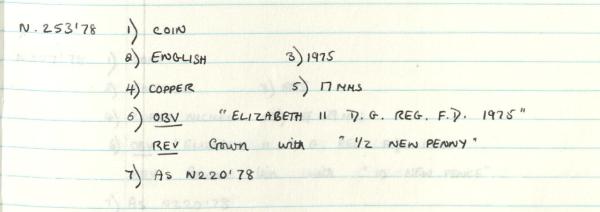 N. 253'78 1) COIN
2) ENGLISH 3) 1975
4) COPPER 5) 17 MMS
6) OBV "ELIZABETH II D. G. REG. F. D. 1975"
REV Crown with "1/2 NEW PENNY"
7) AS N220'78